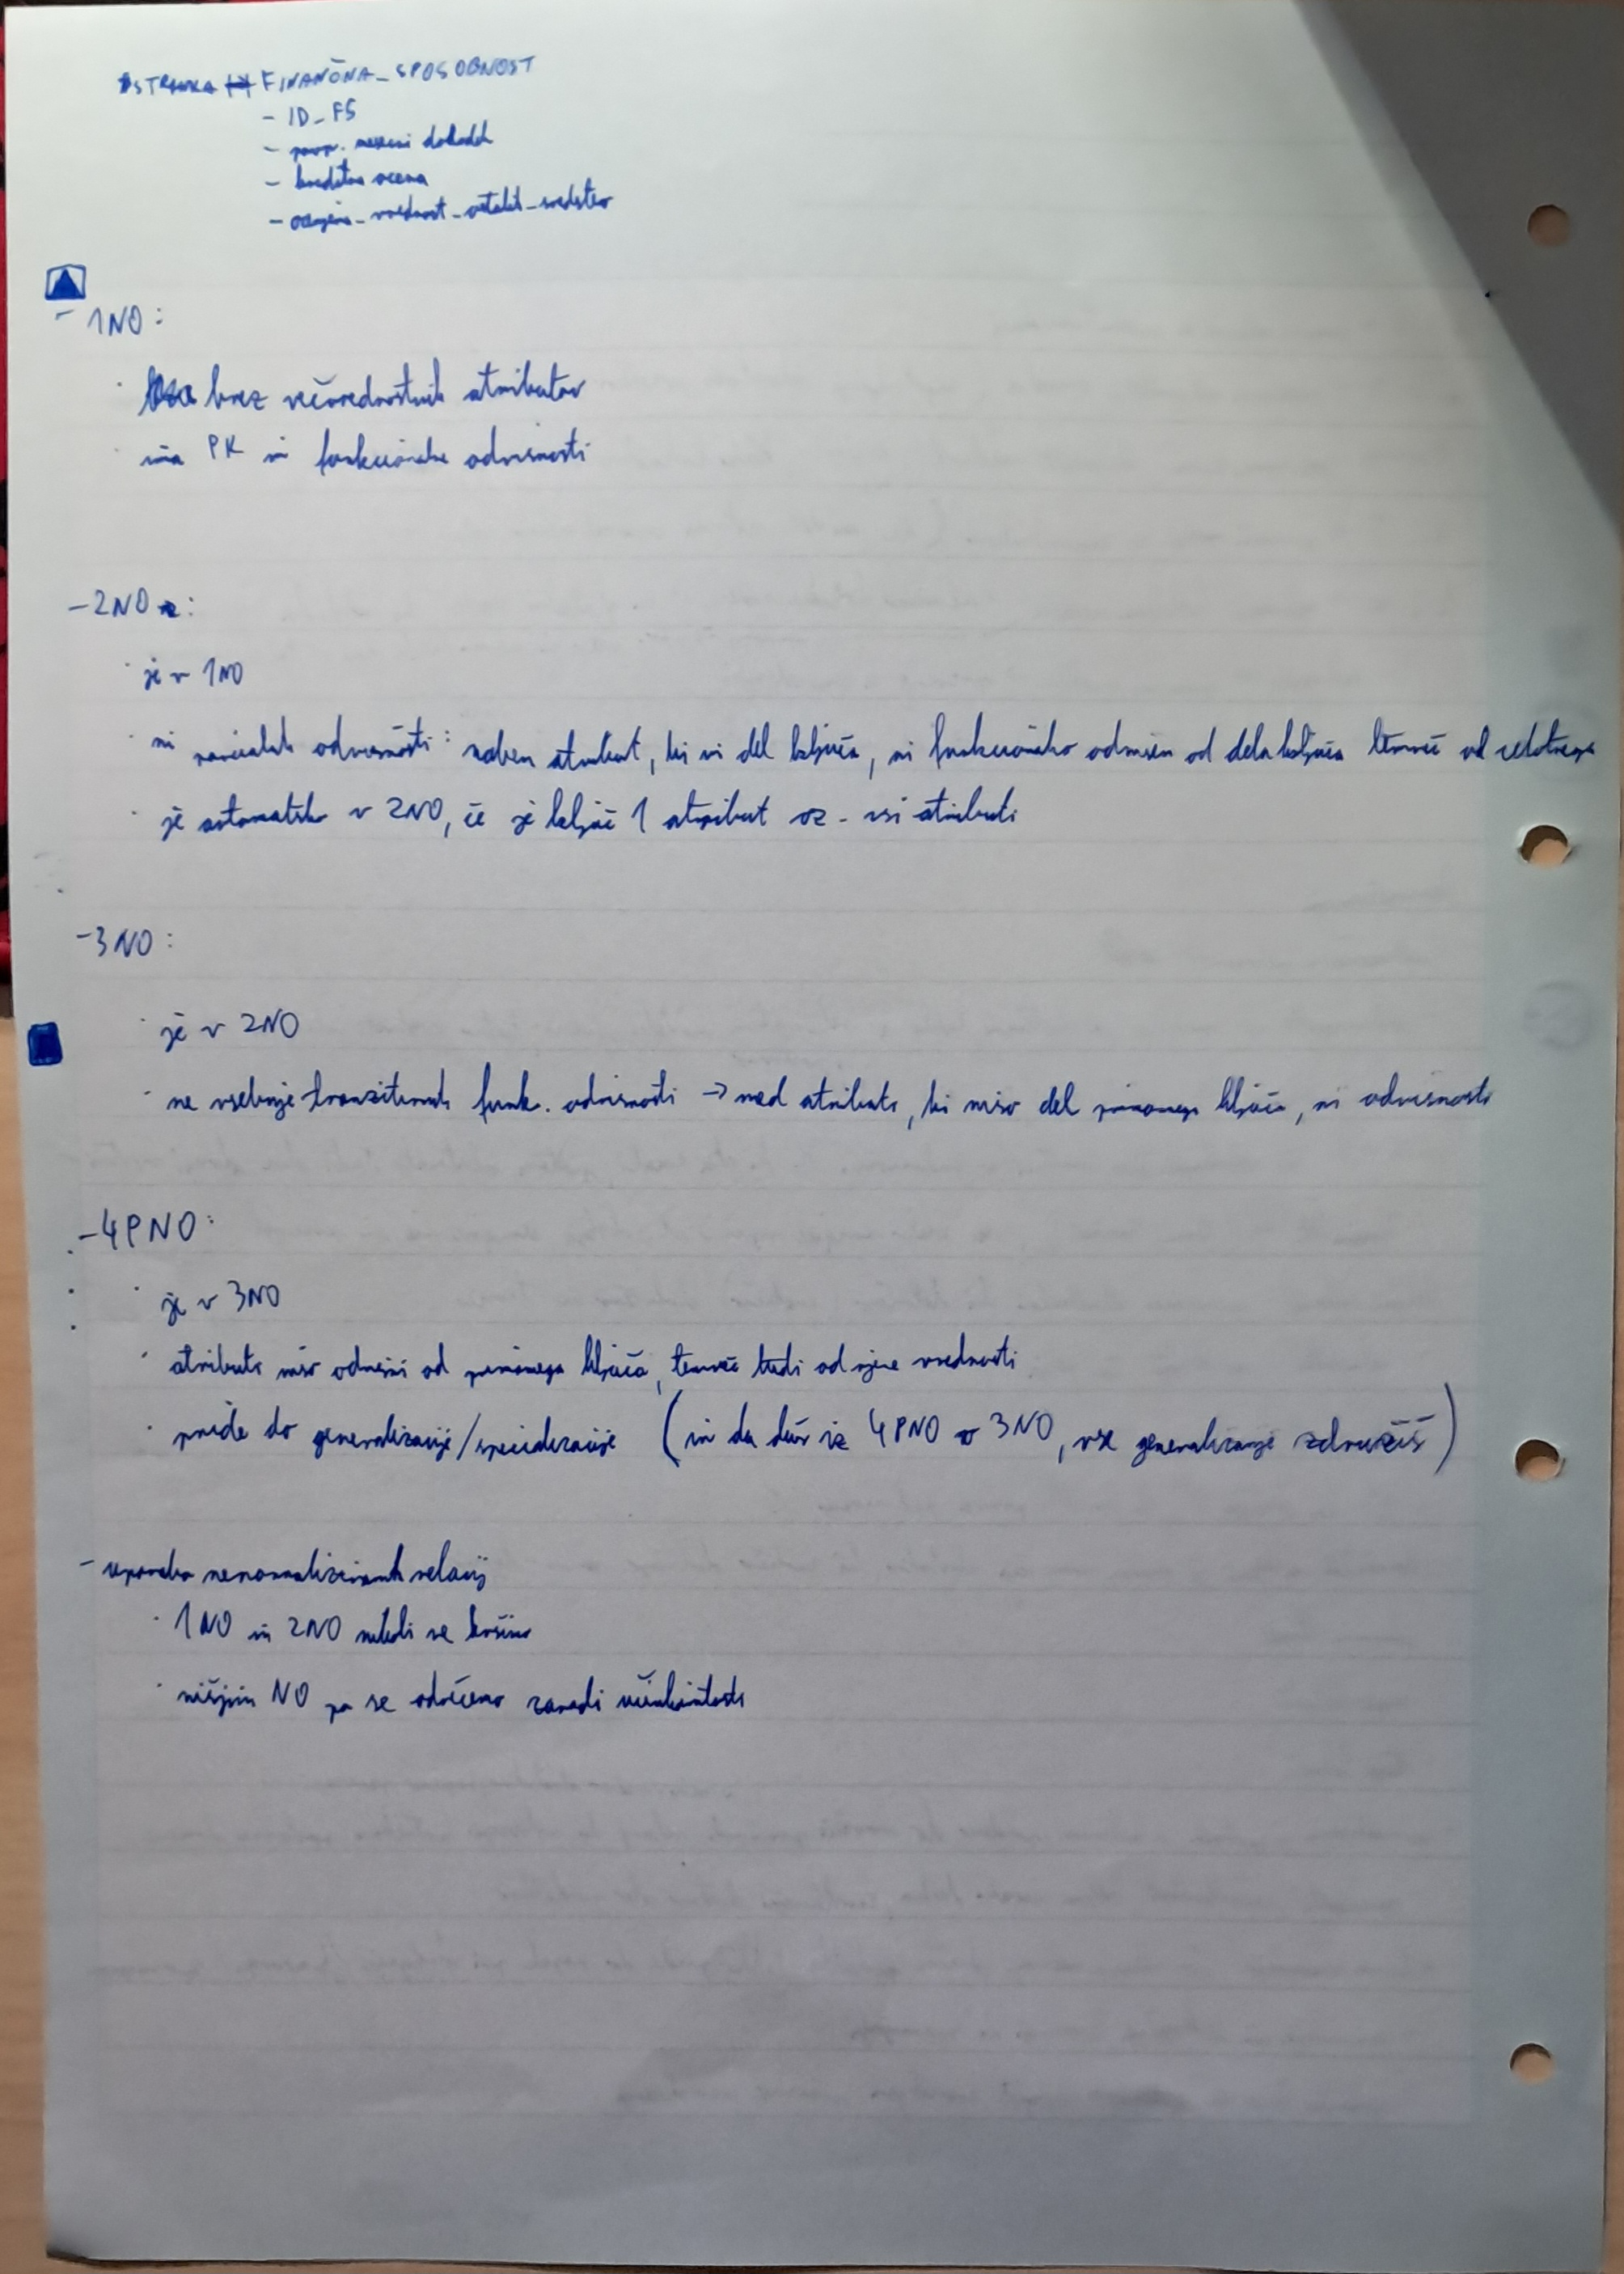 STRANKA H FINANČNA_SPOSOBNOST
- ID_FS
- povpr. mesečni dohodek
- kreditna ocena
- ocenjena_vrednost_ostalih_sredstev
- 1NO:
· brez večvrednostnih atributov
· ima PK in funkcionalne odvisnosti
- 2NO:
· je v 1NO
· ni parcialnih odvisnosti: noben atribut, ki ni del ključa, ni funkcionalno odvisen od dela ključa temveč od celotnega
· je avtomatsko v 2NO, če je ključ 1 atribut oz. vsi atributi
- 3NO:
· je v 2NO
· ne vsebuje tranzitivnih funk. odvisnosti → med atributi, ki niso del primarnega ključa, ni odvisnosti
- 4PNO:
· je v 3NO
· atributi niso odvisni od primarnega ključa, temveč tudi od njene vrednosti
· pride do generalizacije/specializacije (in da daš iz 4PNO v 3NO, vse generalizacije združiš)
- uporaba nenormaliziranih relacij
· 1NO in 2NO nikoli ne kršimo
· višjim NO pa se odrečemo zaradi učinkovitosti